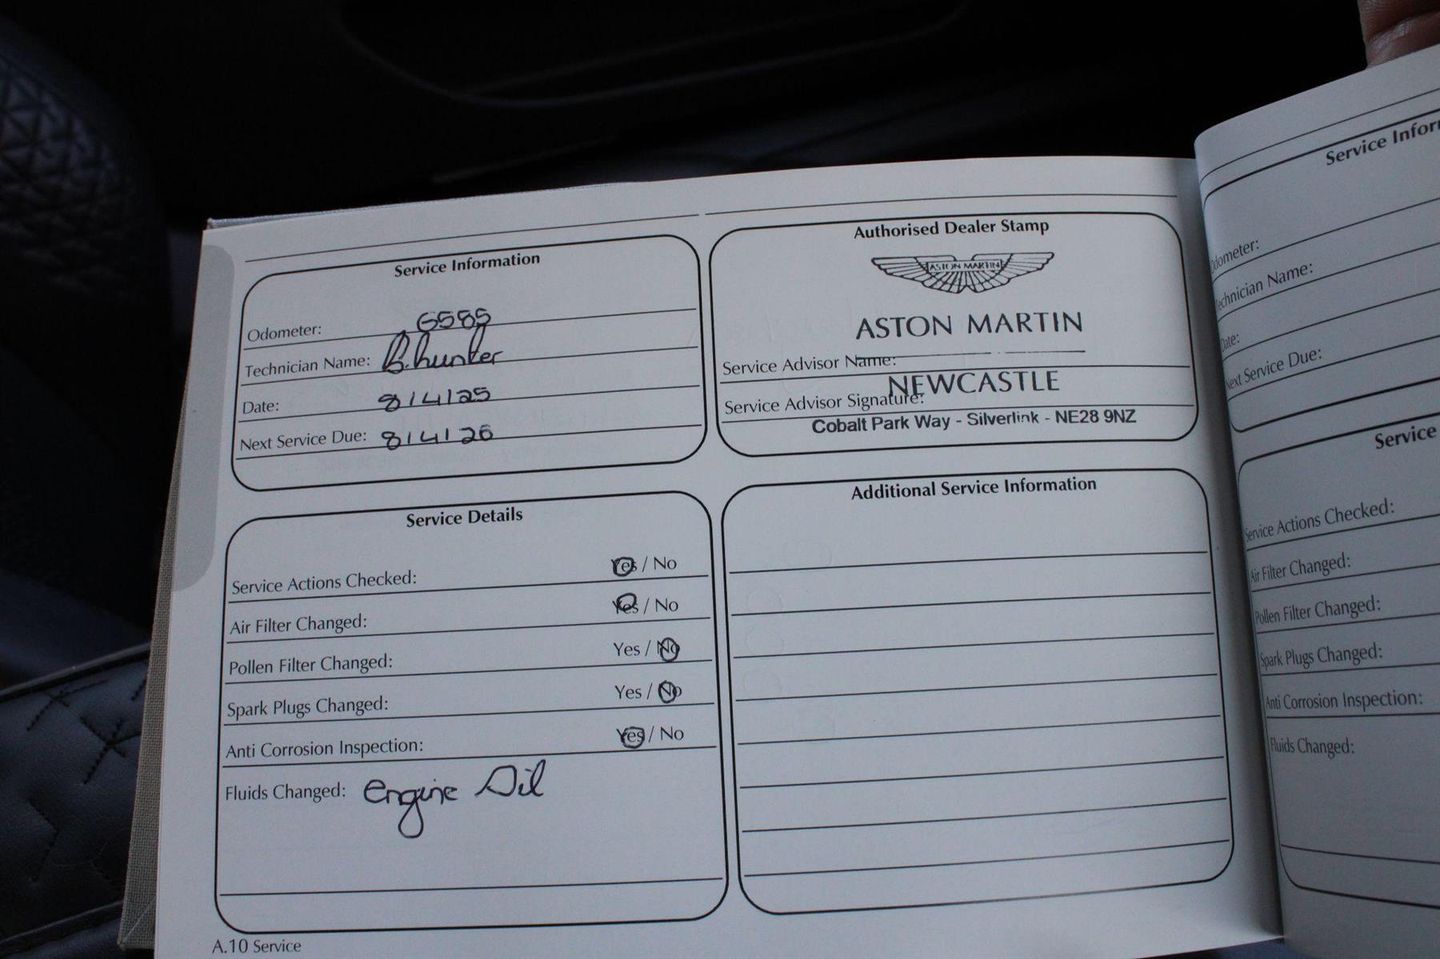 Service Information
Odometer: 6585
Technician Name: B.hunter
Date: 8/4/25
Next Service Due: 8/4/26
Authorised Dealer Stamp
ASTON MARTIN
ASTON MARTIN
Service Advisor Name:
NEWCASTLE
Service Advisor Signature:
Cobalt Park Way - Silverlink - NE28 9NZ
Service Details
Service Actions Checked: Yes / No
Air Filter Changed: Yes / No
Pollen Filter Changed: Yes / No
Spark Plugs Changed: Yes / No
Anti Corrosion Inspection: Yes / No
Fluids Changed: engine Oil
Additional Service Information
A.10 Service
Service Infor
Odometer:
Technician Name:
Date:
Next Service Due:
Service
Service Actions Checked:
Air Filter Changed:
Pollen Filter Changed:
Spark Plugs Changed:
Anti Corrosion Inspection:
Fluids Changed: